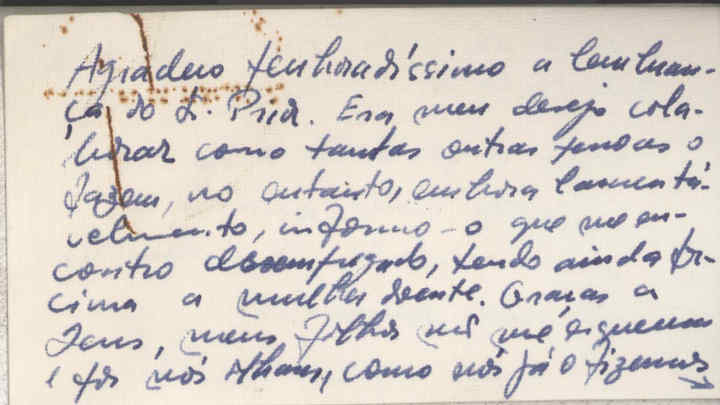 Agradeço penhoradíssimo a lembran-
ça do D. Prior. Era meu desejo cola-
borar como tantas outras pessoas o
fazem, no entanto, embora lamentá-
velmente, informo-o que me en-
contro desempregado, tendo ainda por
cima a mulher doente. Graças a
Deus, meus filhos não me esquecem
e por nós olham, como nós já o fizemos